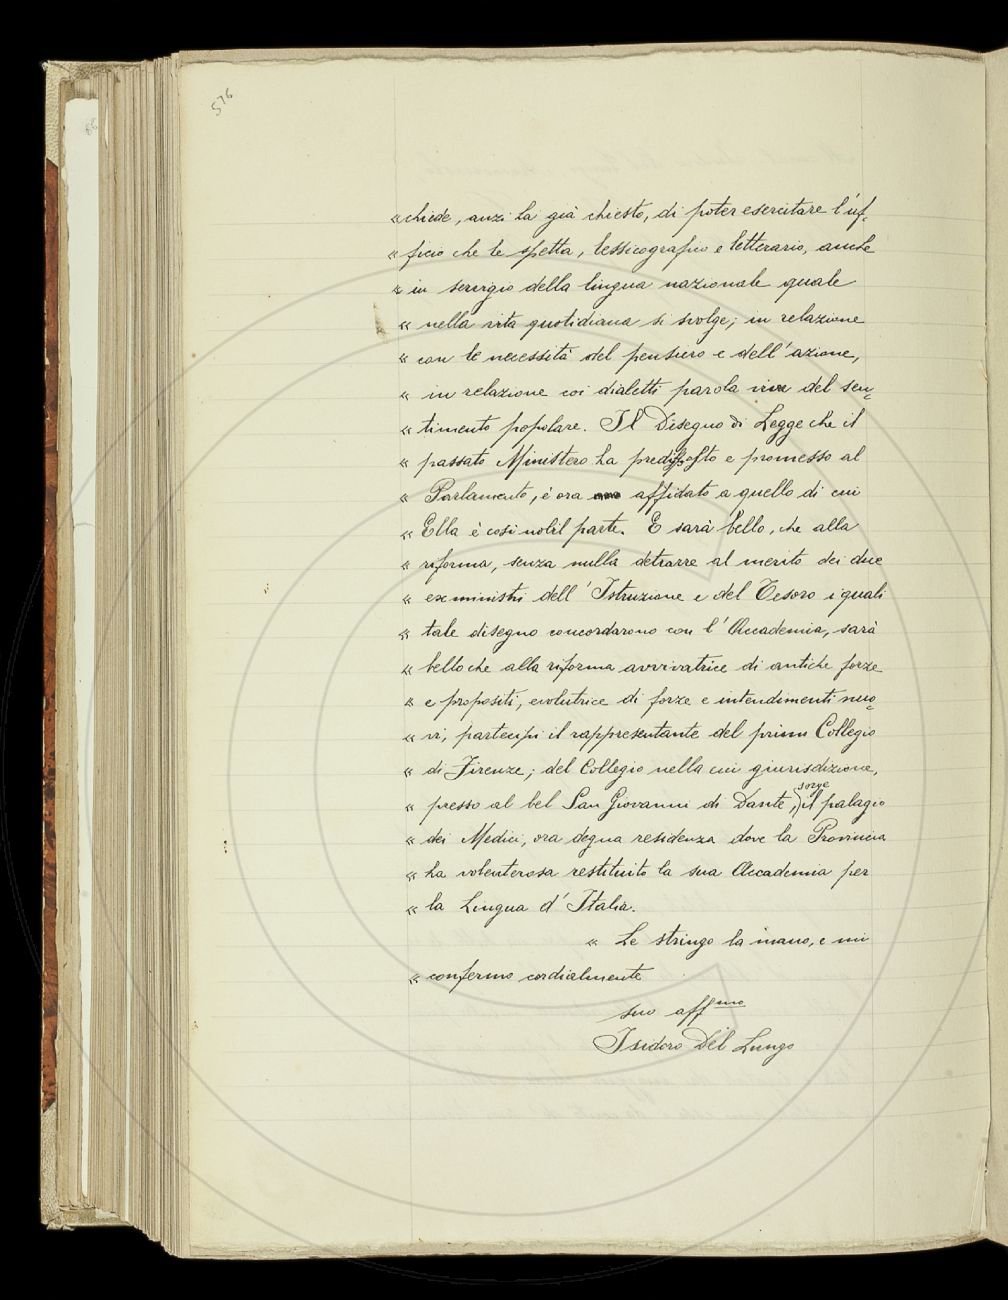 576
« chiede, anzi ha già chiesto, di poter esercitare l'uf-
« ficio che le spetta, lessicografico e letterario, anche
« in servigio della lingua nazionale quale
« nella vita quotidiana si svolge; in relazione
« con le necessità del pensiero e dell'azione,
« in relazione coi dialetti parola viva del sen-
« timento popolare. Il Disegno di Legge che il
« passato Ministero ha predisposto e promesso al
« Parlamento, è ora affidato a quello di cui
« Ella è così nobil parte. E sarà bello, che alla
« riforma, senza nulla detrarre al merito dei due
« exministri dell'Istruzione e del Tesoro i quali
« tale disegno concordarono con l'Accademia, sarà
« bello che alla riforma avvivatrice di antiche forze
« e propositi, evolutrice di forze e intendimenti nuo-
« vi, partecipi il rappresentante del primo Collegio
« di Firenze; del Collegio nella cui giurisdizione,
« presso al bel San Giovanni di Dante, sorge il palagio
« dei Medici, ora degna residenza dove la Provincia
« ha volenterosa restituito la sua Accademia per
« la Lingua d'Italia.
« Le stringo la mano, e mi
« confermo cordialmente
suo aff.mo
Isidoro Del Lungo